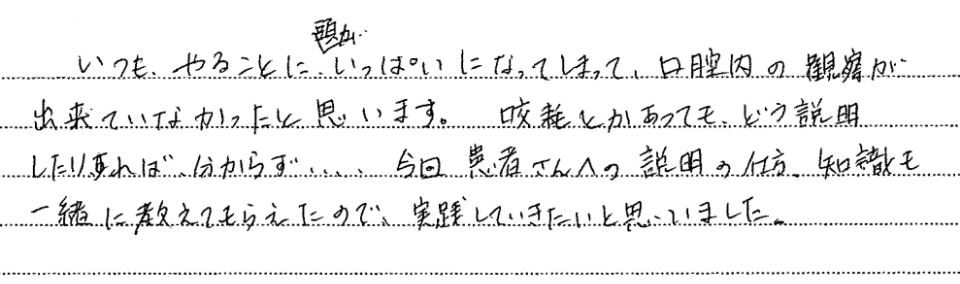 いつも、やることに、頭がいっぱいになってしまって、口腔内の観察が
出来ていなかったと思います。 咬耗とかあっても、どう説明
したりすれば、分からず.... 今回 患者さんへの説明の仕方、知識も
一緒に教えてもらえたので、実践していきたいと思いました。